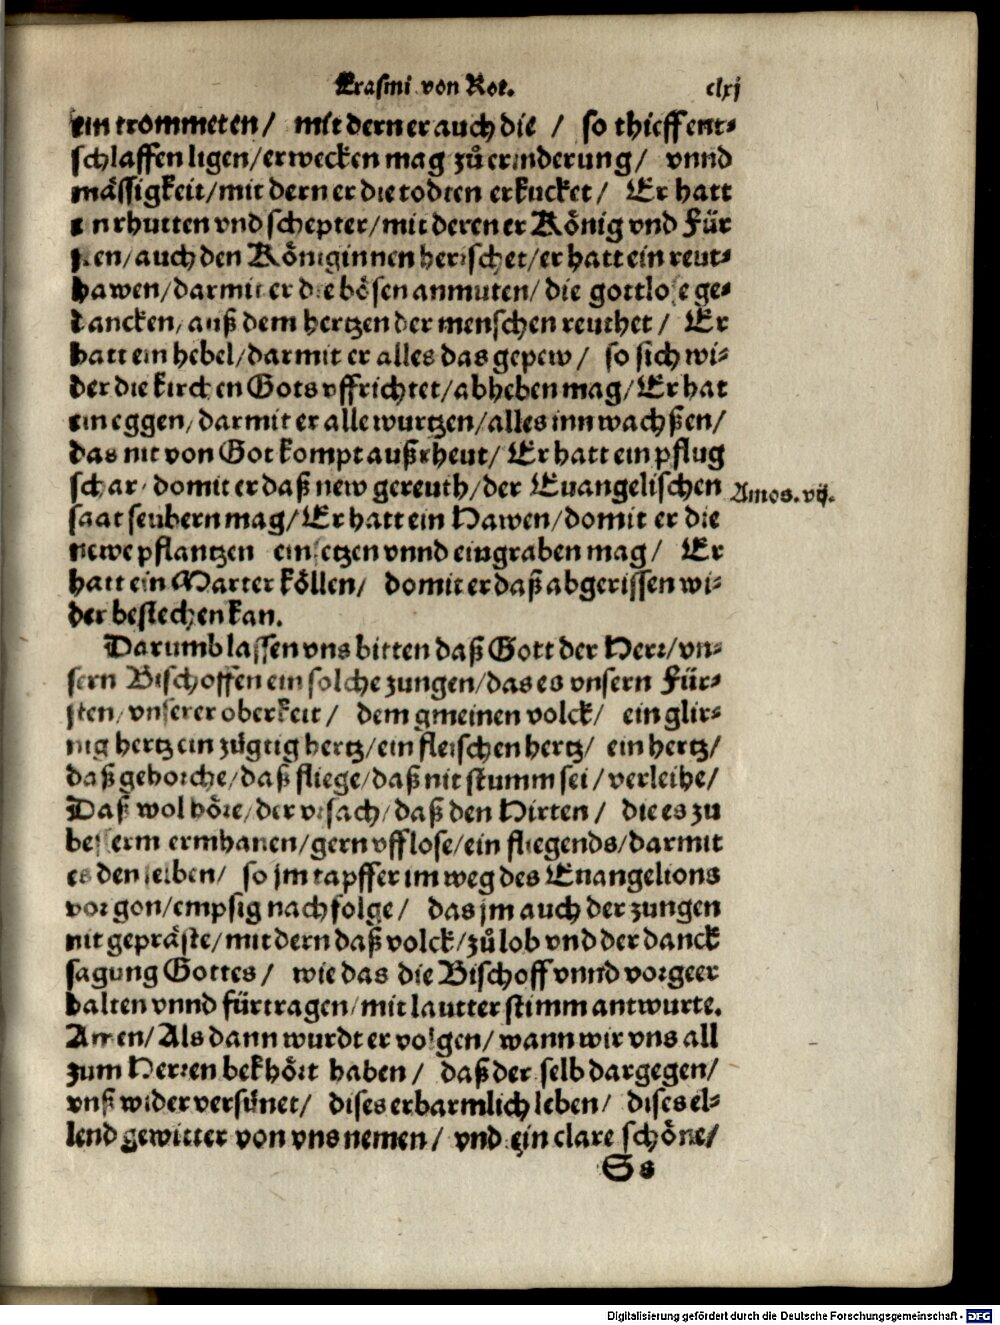 Erasmi von Rot. clxj
ein trommeten / mit dern er auch die / so thieff ent⸗
schlaffen ligen / erwecken mag zů erinderung / vnnd
mässigkeit / mit dern er die todten erkucket / Er hatt
ein rhutten vnd schepter / mit deren er König vnd Für
sten / auch den Königinnen herrschet / er hatt ein reut⸗
hawen / darmit er die bösen anmuten / die gottlose ge⸗
dancken / auß dem hertzen der menschen reuthet / Er
hatt ein hebel / darmit er alles das gepew / so sich wi⸗
der die kirchen Gots vffrichtet / abheben mag / Er hat
ein eggen / darmit er alle wurtzen / alles inn wachßen /
das nit von Got kompt außrheut / Er hatt ein pflug
schar / domit er daß new gereuth / der Euangelischen
Amos. vij.
saat seubern mag / Er hatt ein Hawen / domit er die
newe pflantzen einsetzen vnnd eingraben mag / Er
hatt ein Marter köllen / domit er daß abgerissen wi⸗
der bestechen kan.
Darumb lassen vns bitten daß Gott der Herr / vn⸗
sern Bischoffen ein solche zungen / das es vnsern Für⸗
sten / vnserer oberkeit / dem gmeinen volck / ein glir⸗
nig hertz ein zügtig hertz / ein fleischen hertz / ein hertz /
daß gehorche / daß fliege / daß nit stumm sei / verleihe /
Daß wol höre / der vrsach / daß den Hirten / die es zu
besserm ermhanen / gern vfflose / ein fliegends / darmit
es denselben / so jm tapffer im weg des Enangelions
vor gon / empsig nachfolge / das jm auch der zungen
nit gepräste / mit dern daß volck / zů lob vnd der danck
sagung Gottes / wie das die Bischoff vnnd vorgeer
halten vnnd fürtragen / mit lautter stimm antwurte.
Amen / Als dann wurdt er volgen / wann wir vns all
zum Herren bekhört haben / daß der selb dargegen /
vnß wider versünet / dises erbarmlich leben / dises el⸗
lend gewitter von vns nemen / vnd ein clare schöne /
Ss
Digitalisierung gefördert durch die Deutsche Forschungsgemeinschaft - DFG